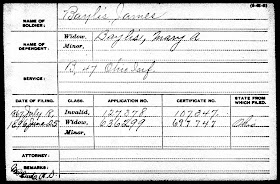 (3-42-8)
NAME OF SOLDIER: Baylis, James
NAME OF DEPENDENT: Widow, Baylis, Mary A
Minor,
SERVICE: B, 47 Ohio Inf.
DATE OF FILING. CLASS. APPLICATION NO. CERTIFICATE NO. STATE FROM WHICH FILED.
July 8, Invalid, 127.378 107.347
1896 June 25 Widow, 636299 697747 Ohio
Minor,
ATTORNEY:
REMARKS: